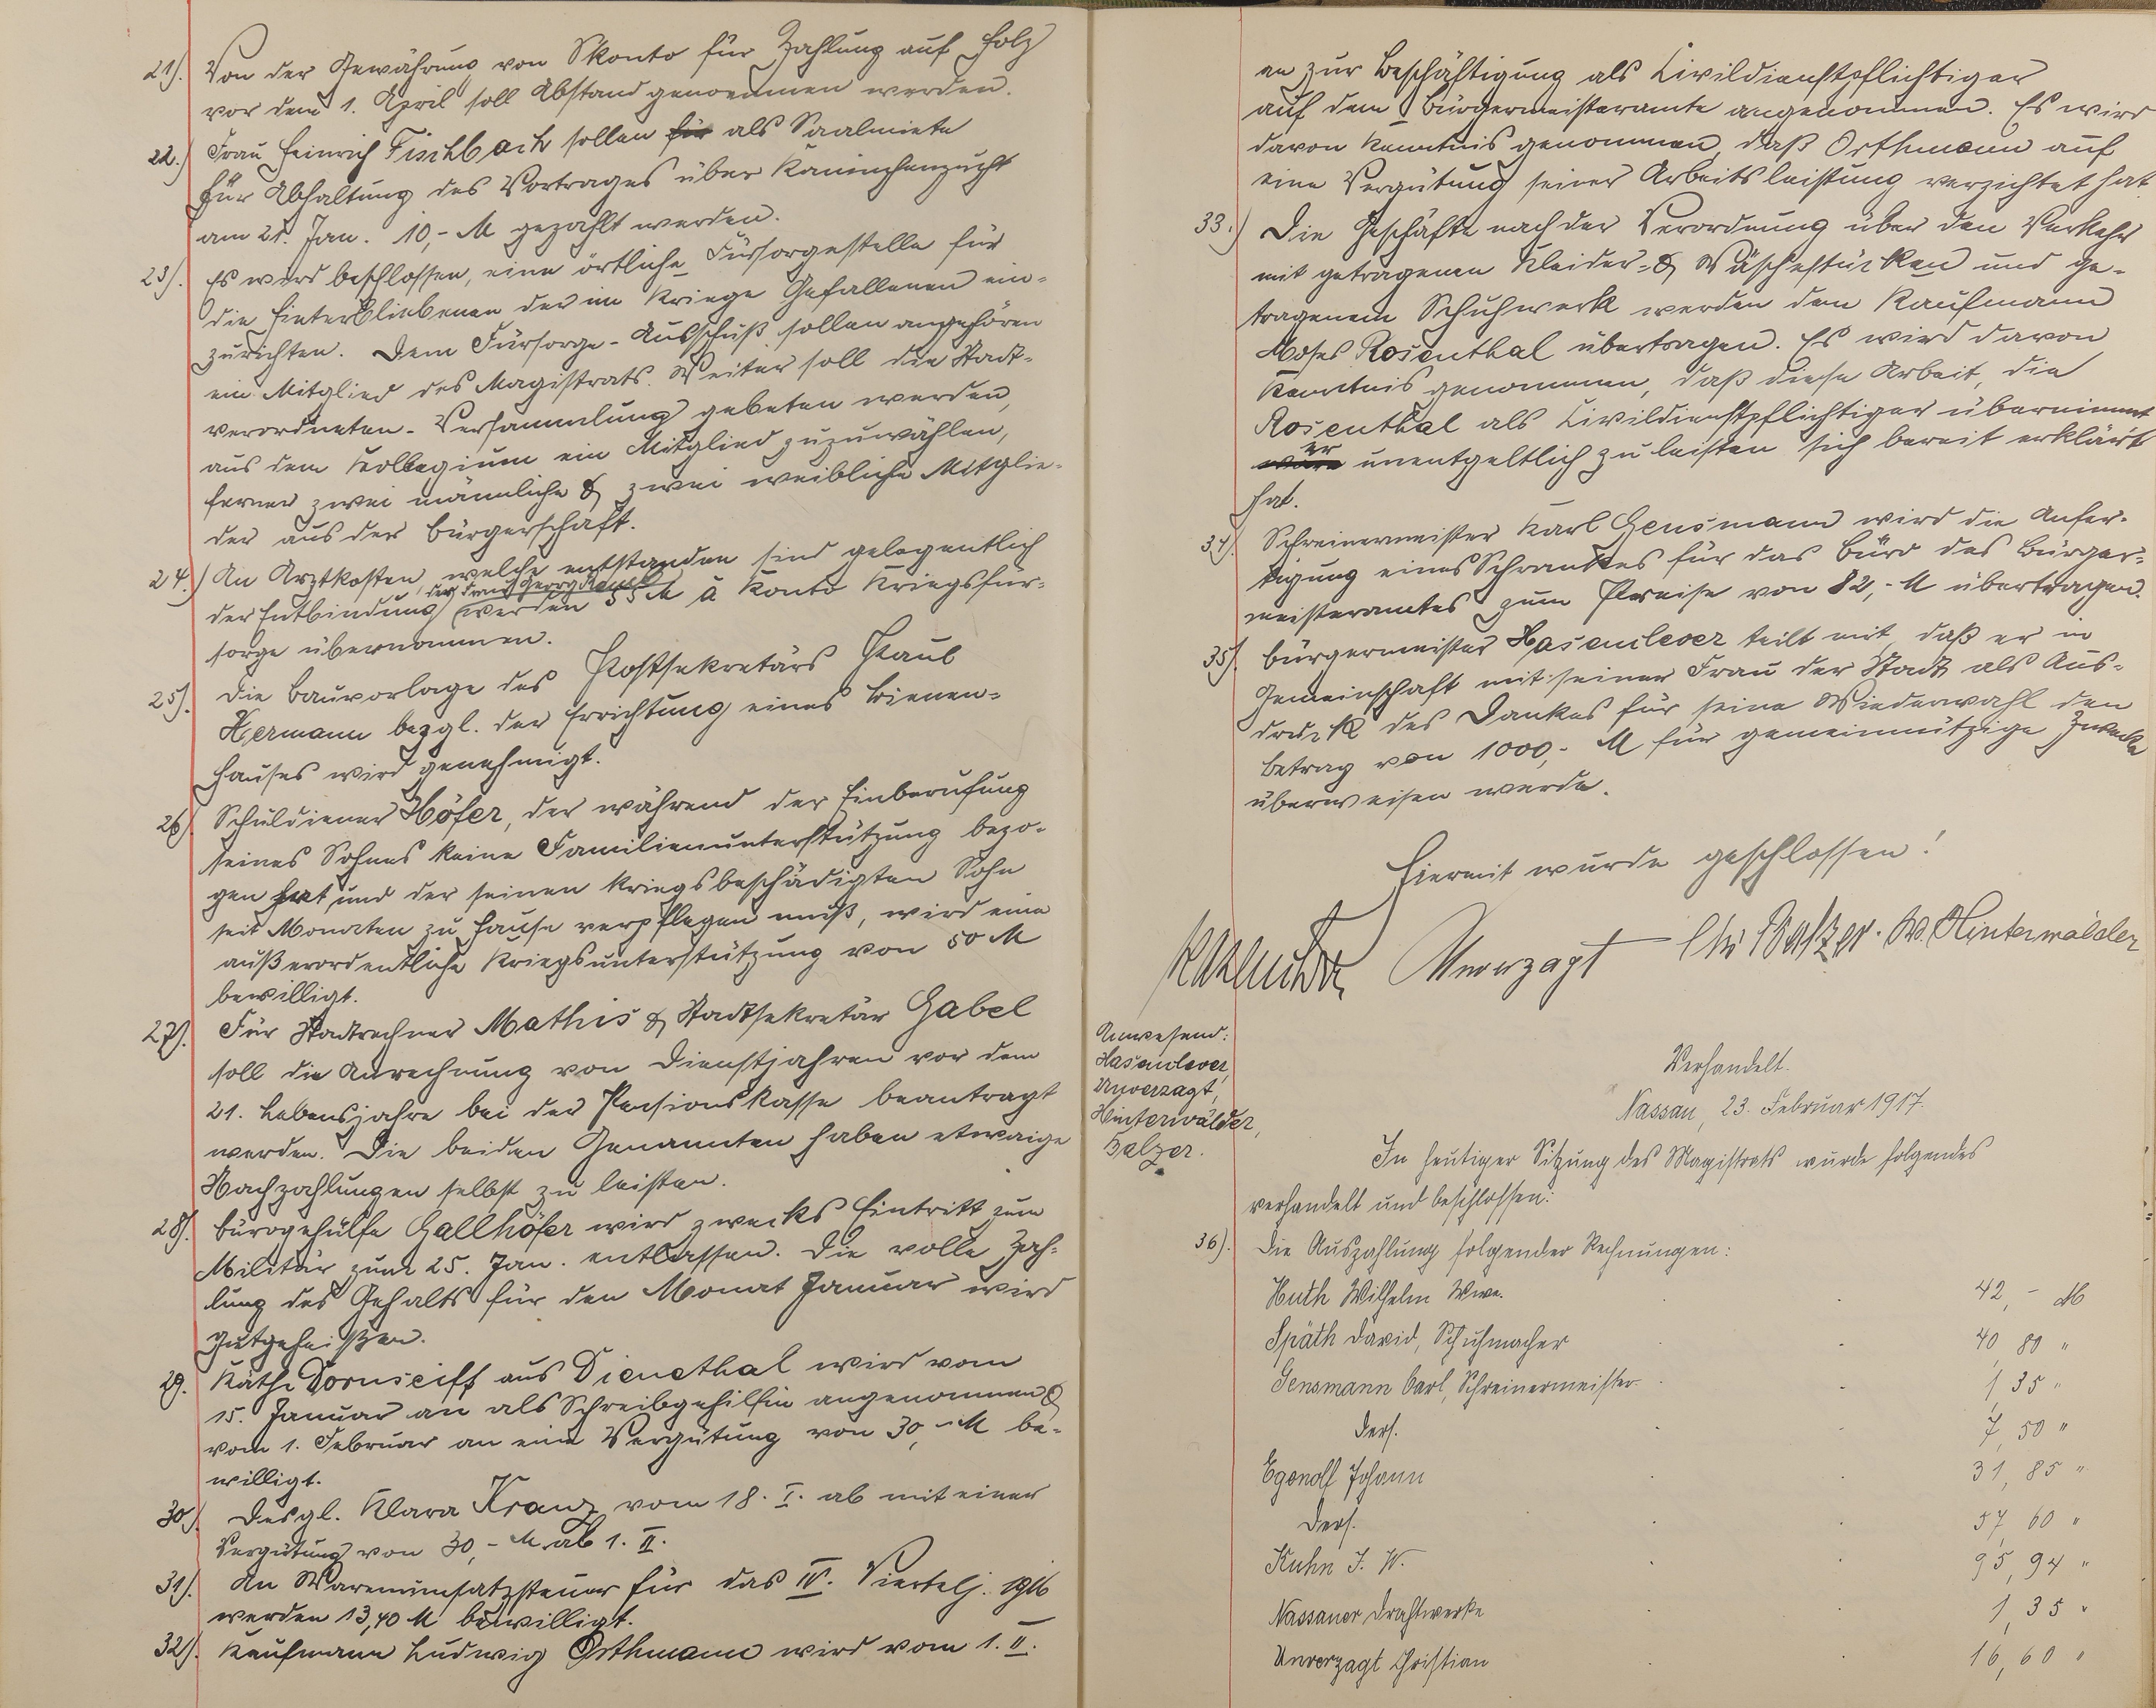 21). Von der Gewährung von Skonto für Zahlung auf Holz
vor dem 1. April soll Abstand genommen werden.
22.) Frau Heinrich Fischbach sollen für als Saalmiete
für Abhaltung des Vortrages über Kaninchenzucht
am 21. Jan. 10,- M gezahlt werden.
23). Es wird beschlossen, eine örtliche Fürsorgestelle für
die Hinterbliebenen der im Kriege Gefallenen ein-
zurichten. Dem Fürsorge-Ausschuß sollen angehören
ein Mitglied des Magistrats. Weiter soll die Stadt-
verordneten-Versammlung gebeten werden,
aus dem Kollegium ein Mitglied zuzuwählen,
ferner zwei männliche & zwei weibliche Mitglie-
der aus der Bürgerschaft.
24.) An Arztkosten, welche entstanden sind gelegentlich
der Frau Georg
der Entbindung werden 55 M à Konto Kriegsfür-
sorge übernommen.
25). Die Bauvorlage des Postsekretärs Paul
Hermann bezgl. der Errichtung eines Bienen-
hauses wird genehmigt.
26). Schuldiener Höfer, der während der Einberufung
seines Sohnes keine Familienunterstützung bezo-
gen hat und der seinen kriegsbeschädigten Sohn
seit Monaten zu Hause verpflegen muß, wird eine
außerordentliche Kriegsunterstützung von 50 M
bewilligt.
27). Für Stadtrechner Mathis & Stadtsekretär Gabel
soll die Anrechnung von Dienstjahren vor dem
21. Lebensjahre bei der Pensionskasse beantragt
werden. Die beiden Genannten haben etwaige
Nachzahlungen selbst zu leisten.
28). Bürogehülfe Gallhöfer wird zwecks Eintritt zum
Militär zum 25. Jan. entlassen. Die volle Zah-
lung des Gehalts für den Monat Januar wird
gutgeheißen.
29. Käthe Dornseiff aus Dienethal wird vom
15. Januar an als Schreibgehilfin angenommen &
vom 1. Februar an eine Vergütung von 30,- M be-
willigt.
30). Desgl. Klara Kranz vom 18. I. ab mit einer
Vergütung von 30,- M ab 1. II.
31). An Warenumsatzsteuer für das IV. Viertelj. 1916
werden 13,40 M bewilligt.
32). Kaufmann Ludwig Orthmann wird vom 1. II.
an zur Beschäftigung als Civildienstpflichtiger
auf dem Bürgermeisteramte angenommen. Es wird
davon Kenntnis genommen, daß Orthmann auf
eine Vergütung seiner Arbeitsleistung verzichtet hat
33.) Die Geschäfte nach der Verordnung über den Verkehr
mit getragenen Kleider- & Wäschestücken und ge-
tragenem Schuhwerk werden dem Kaufmann
Moses Rosenthal übertragen. Es wird davon
Kenntnis genommen, daß diese Arbeit, die
Rosenthal als Civildienstpflichtiger übernimmt
er
unentgeltlich zu leisten sich bereit erklärt
hat.
34). Schreinermeister Karl Gensmann wird die Anfer-
tigung eines Schrankes für das Büro des Bürger-
meisteramtes zum Preise von 82,- M übertragen.
35). Bürgermeister Hasenclever teilt mit, daß er in
Gemeinschaft mit seiner Frau der Stadt als Aus-
druck des Dankes für seine Wiederwahl den
Betrag von 1000,- M für gemeinnützige Zwecke
überweisen werde.
Hiermit wurde geschlossen!
Unverzagt Chr Balzer. W. Hinterwälder
Anwesend:
Hasenclever,
Unverzagt,
Hinterwälder,
Balzer.
Verhandelt.
Nassau, 23. Februar 1917.
In heutiger Sitzung des Magistrats wurde folgendes
verhandelt und beschlossen:
36). Die Auszahlung folgender Rechnungen:
Huth Wilhelm Wwe. 42,- M
Späth David, Schuhmacher 40,80 "
Gensmann Carl, Schreinermeister 1,35 "
Ders. 7,50 "
Egenolf Johann 31,85 "
Ders. 57,60 "
Kuhn J. W. 95,94 "
Nassauer Drahtwerke 1,35 "
Unverzagt Christian 16,60 "